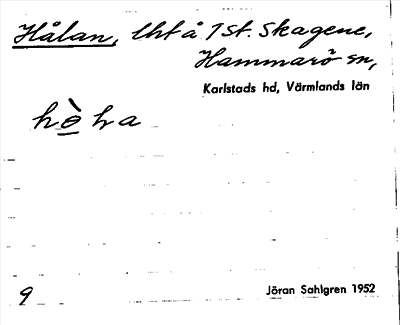 Hålan, lht å 1 st. Skagene,
Hammarö sn,
Karlstads hd, Värmlands län
9
Jöran Sahlgren 1952